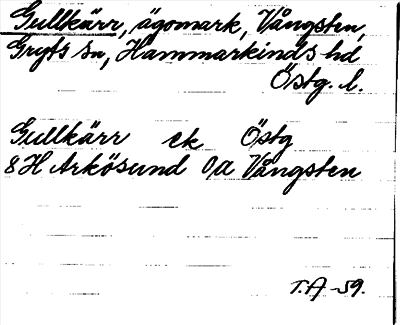 Gullkärr, ägomark, Vångsten,
Gryts sn, Hammarkinds hd
Östg. l.
Gullkärr ek Östg
8H Arkösund 0,a Vångsten
T.A -59.